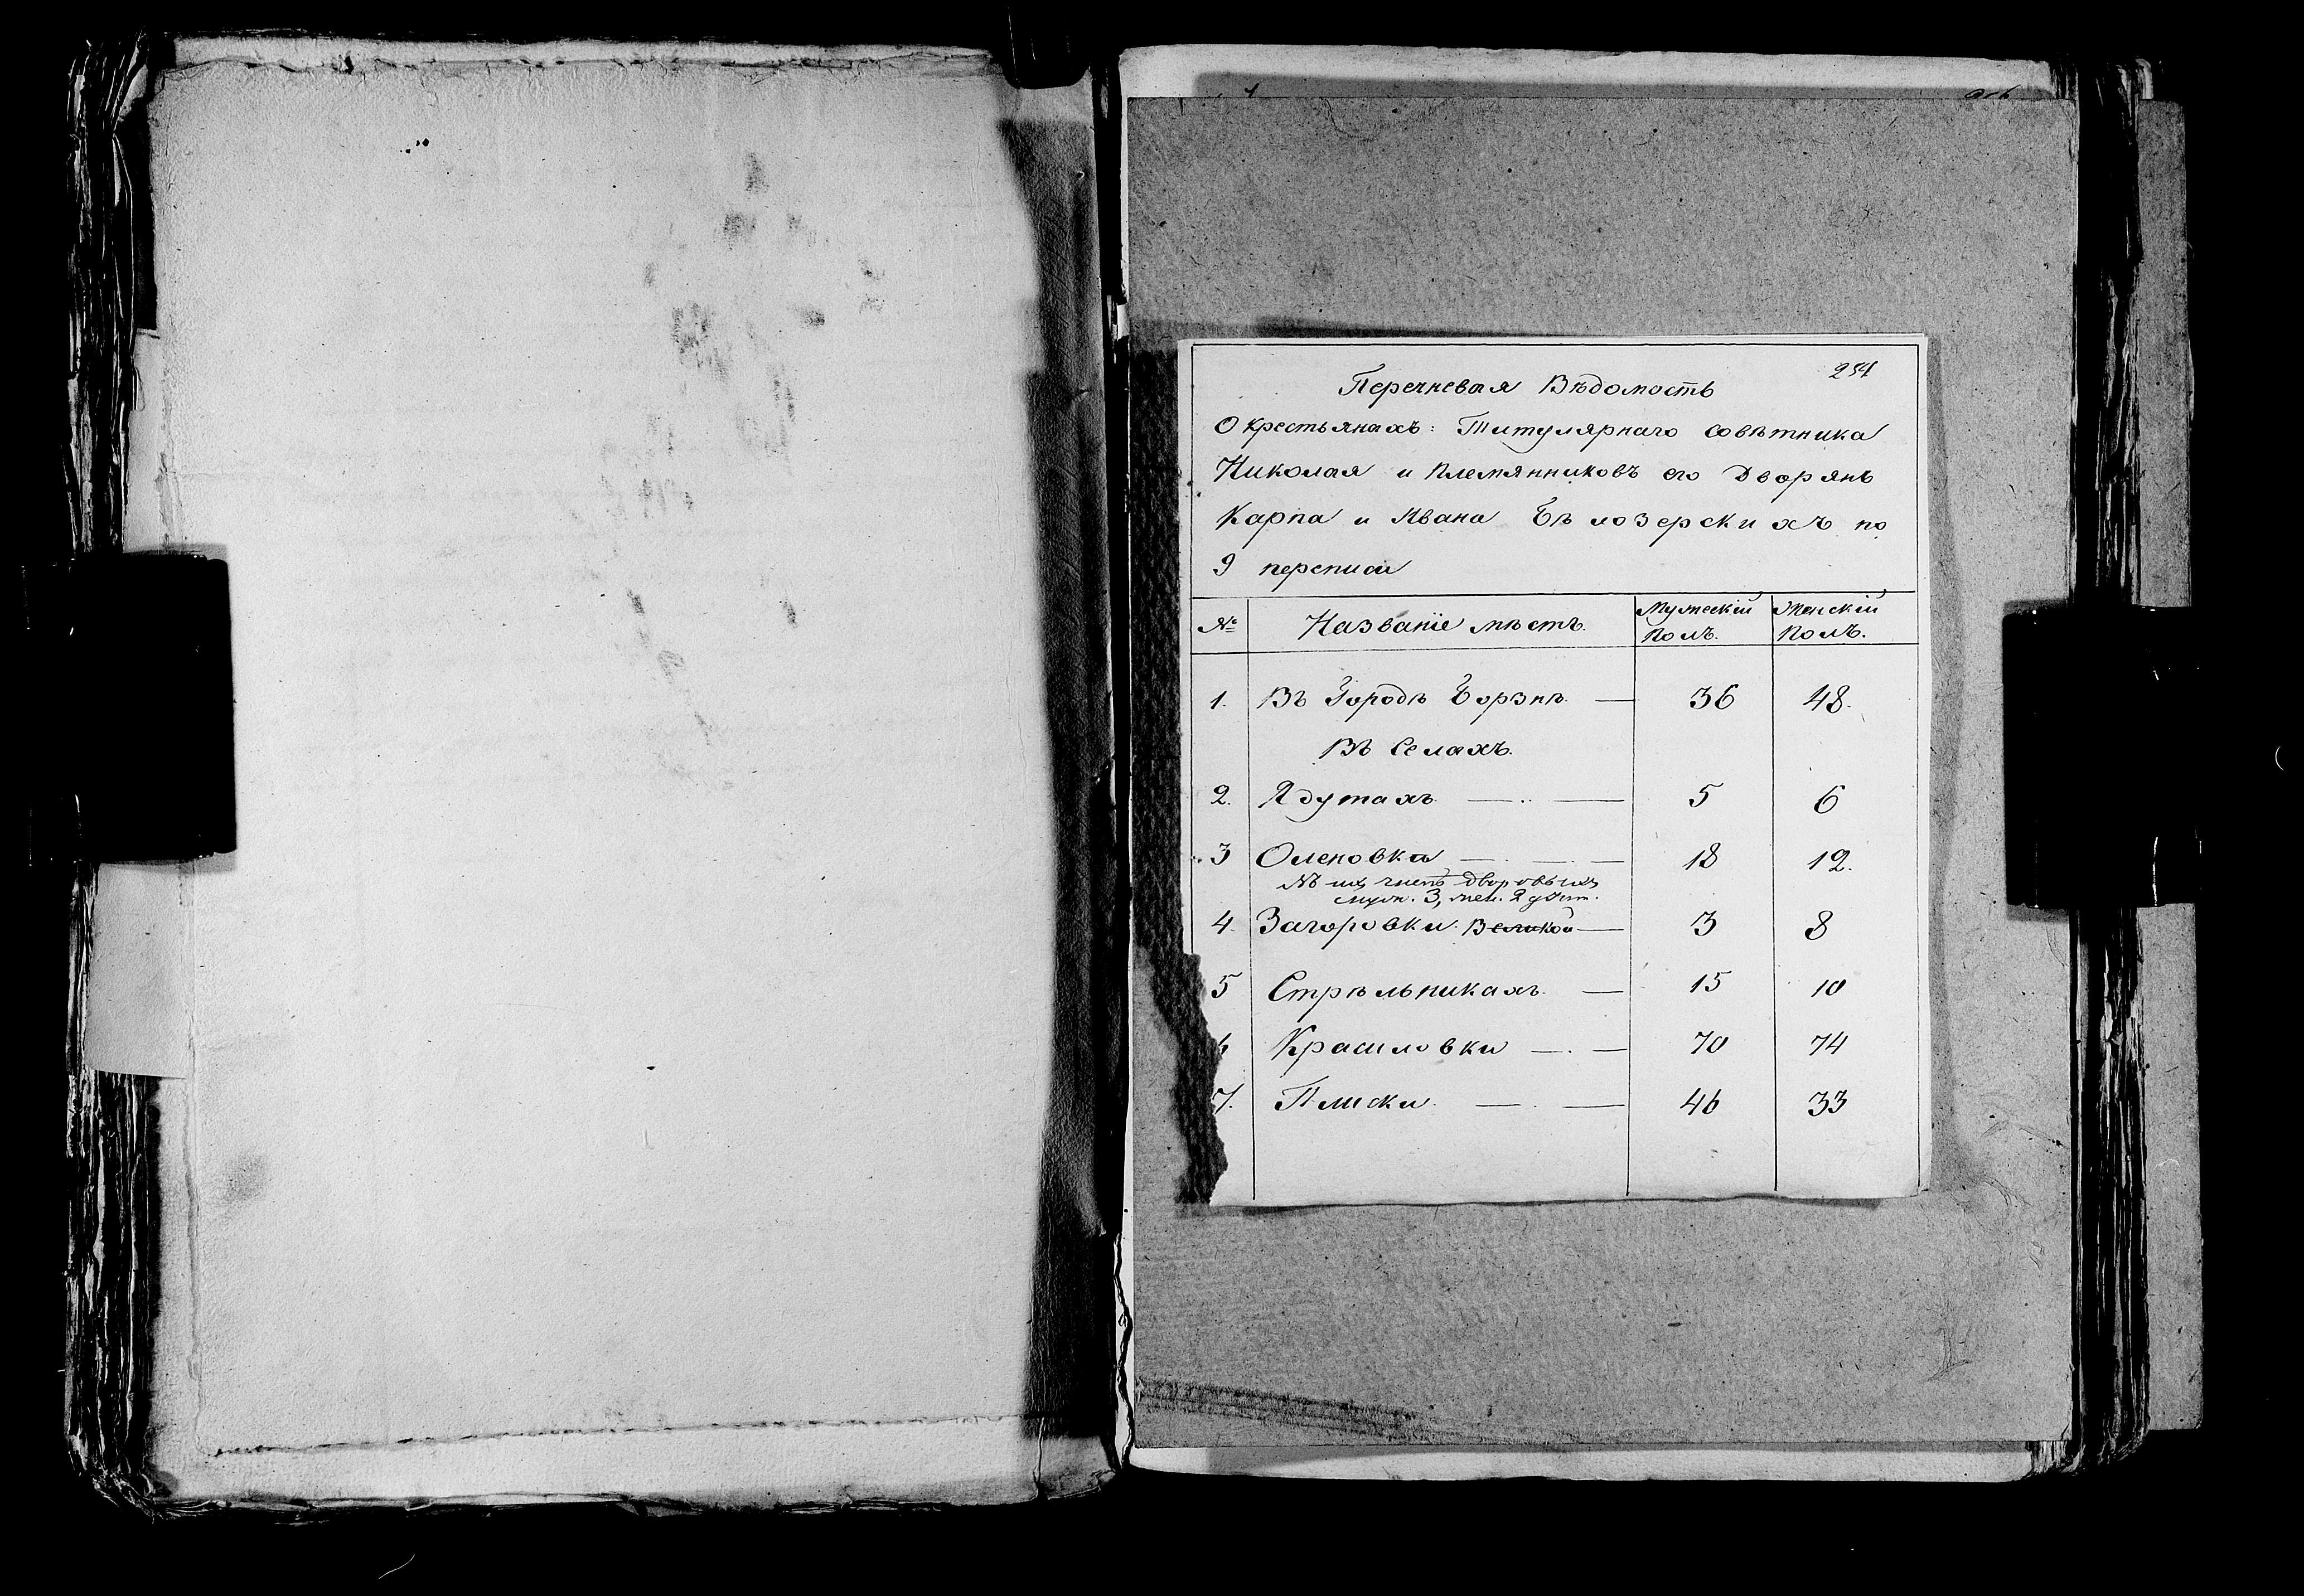 254
Перечневая Вѣдомость
О крестьянахъ: Титулярнаго совѣтника
Николая и племянниковъ его Дворянъ
Карпа и Ивана Бѣлозерскихъ по
9 переписи
№ Названіе мѣстъ. Мужескій полъ. Женскій полъ.
1. Въ Городѣ Борзнѣ — 36 48.
Въ Селахъ.
2. Ядутахъ — .. — 5 6
3 Оленовка — . — . — 18 12.
Въ ихъ числѣ дворовыхъ
муж. 3, жен. 2 душ.
4. Загоровки Великой — 3 8
5 Стрѣльникахъ — 15 10
6 Красиловки — . — 70 74
7. Плиски — . — 46 33